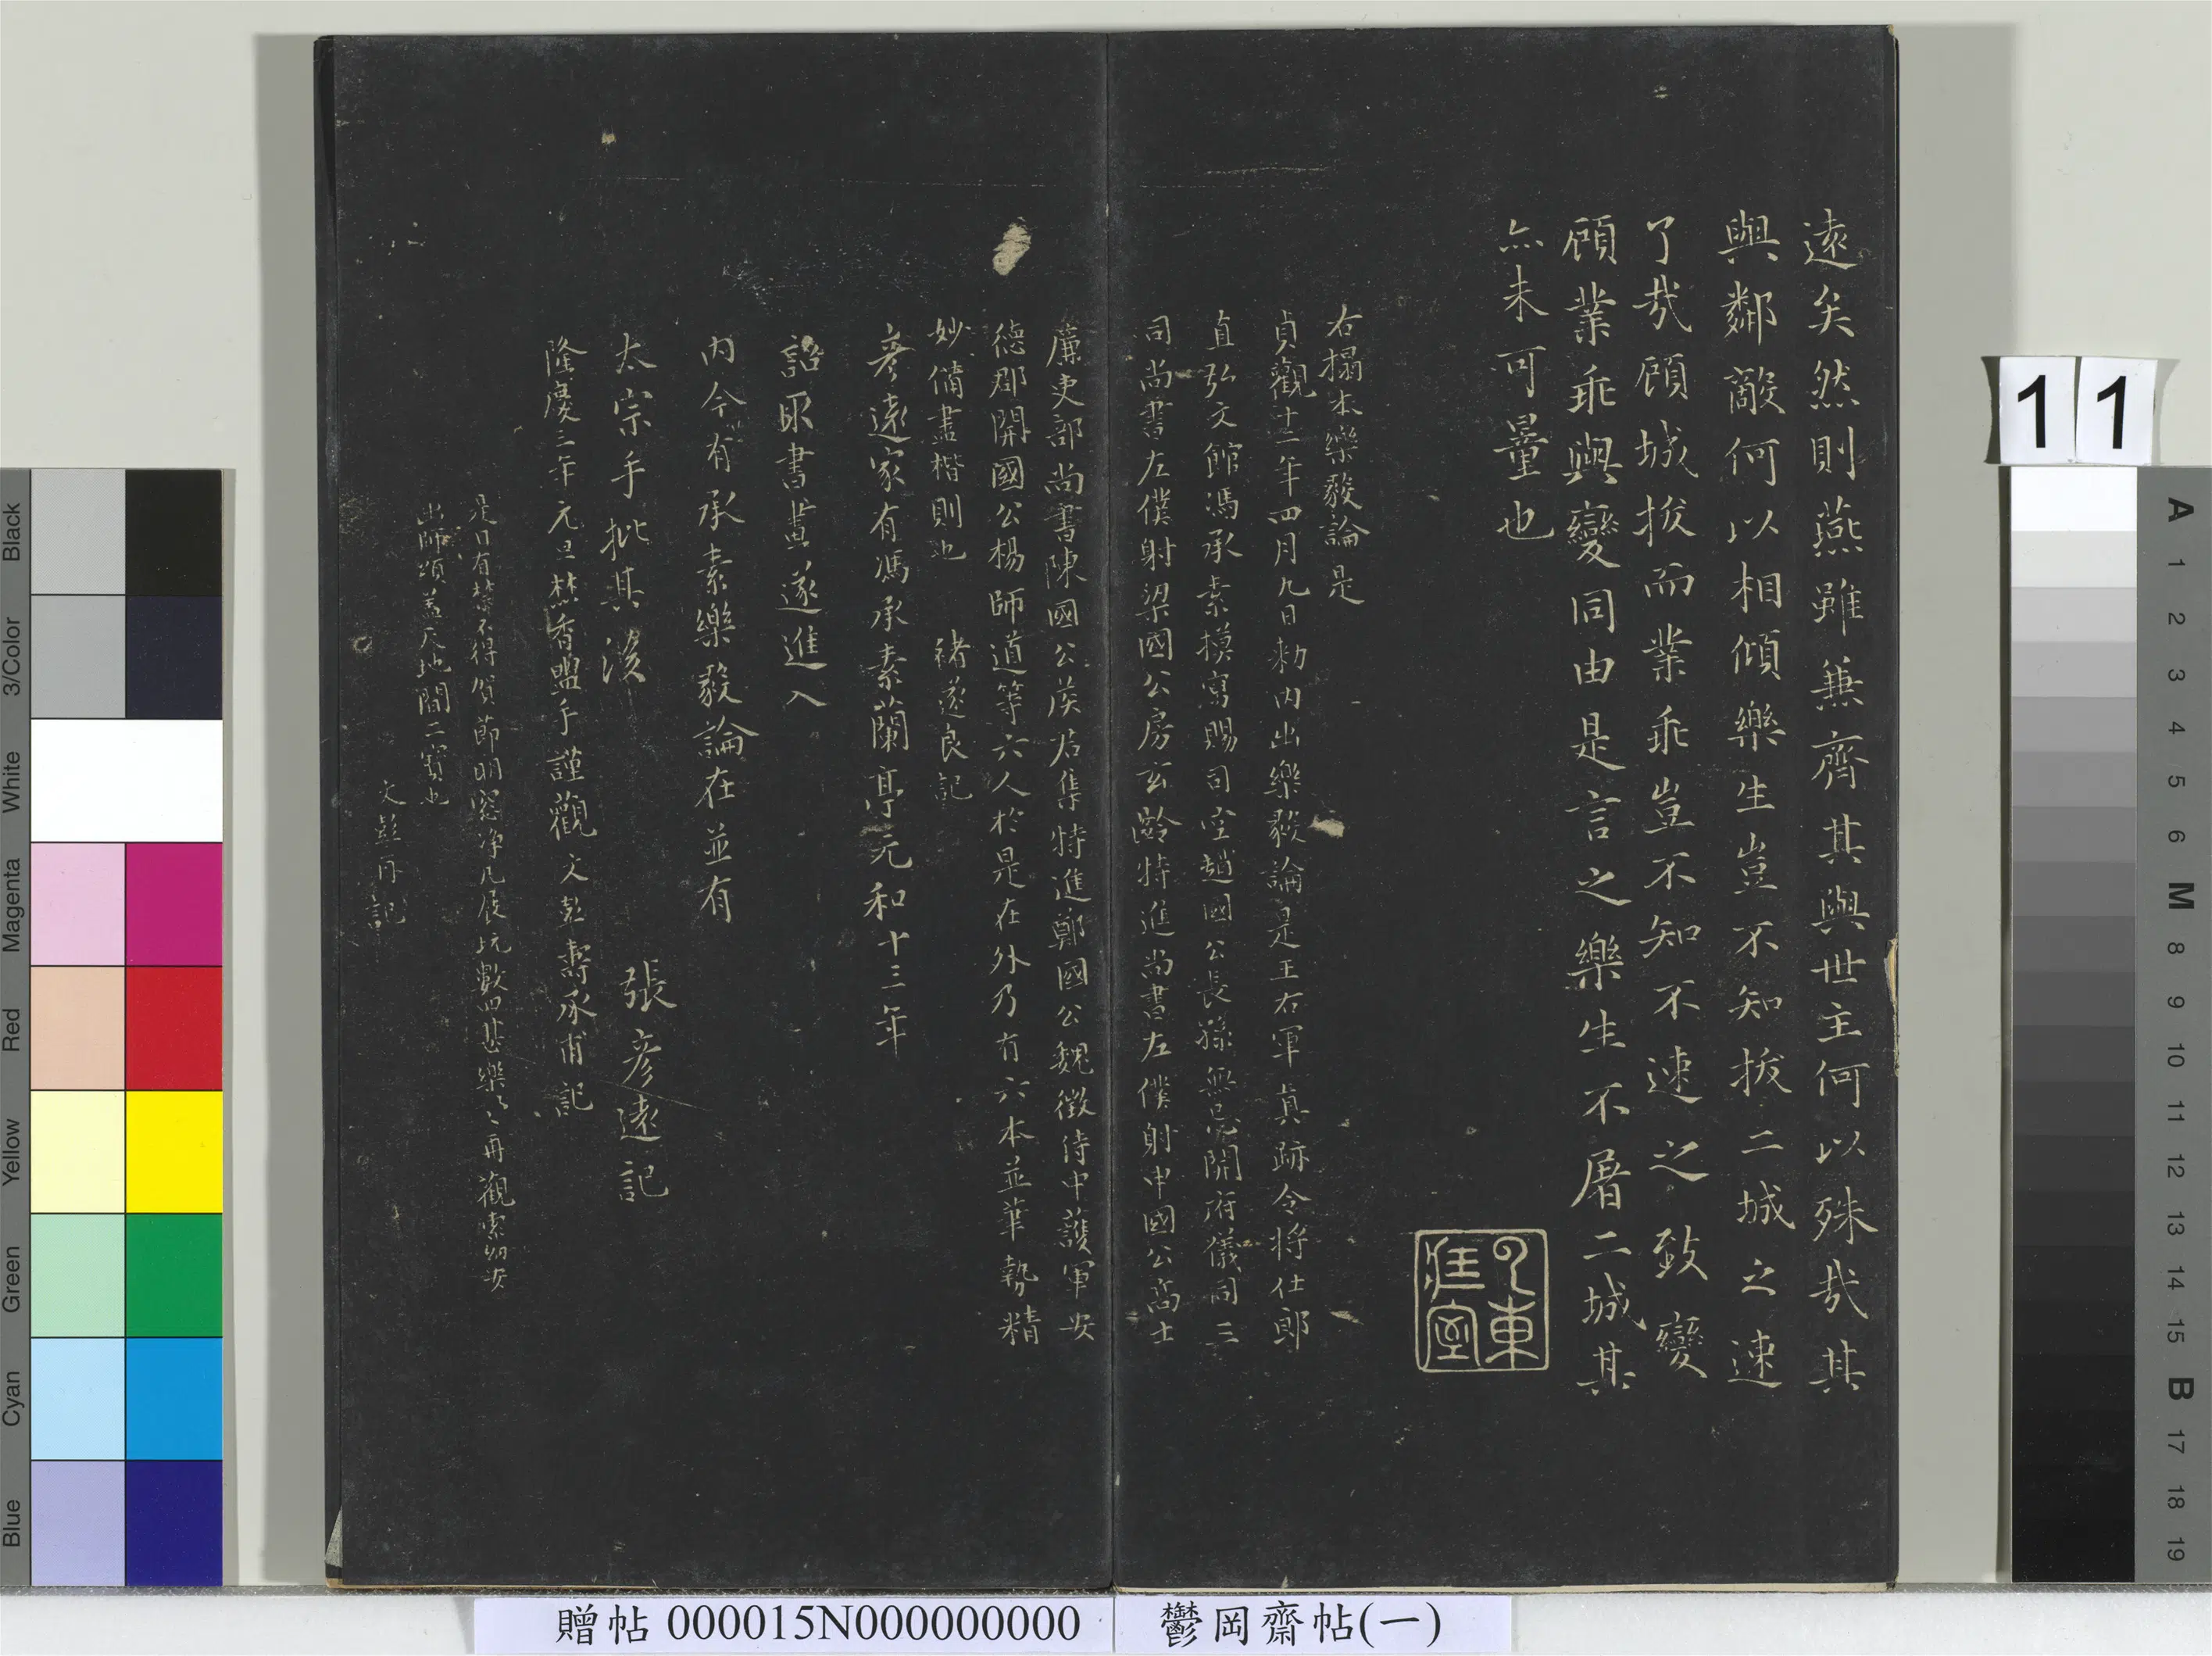 遠矣然則燕雖兼齊其與世主何以殊哉其
與鄰敵何以相傾樂生豈不知拔二城之速
了哉顧城拔而業乖豈不知不速之致變
顧業乖與變同由是言之樂生不屠二城其
亦未可量也
右搨本樂毅論是
貞觀十二年四月九日勑內出樂毅論是王右軍真跡令將仕郎
直弘文館馮承素模寫賜司空趙國公長孫無忌開府儀同三
司尚書左僕射梁國公房玄齡特進尚書左僕射申國公高士
廉吏部尚書陳國公侯君集特進鄭國公魏徵侍中護軍安
德郡開國公楊師道等六人於是在外乃有六本並筆勢精
妙備盡楷則也 褚遂良記
彥遠家有馮承素蘭亭元和十三年
詔取書畫遂進入
內今有承素樂毅論在並有
太宗手批其後
張彥遠記
隆慶三年元旦焚香盥手謹觀文彭壽承甫記
是日有禁不得賀節明窓淨几展玩數四甚樂甚樂再觀索幼安
出師頌蓋天地間二寶也
文彭再記
室
東
11
贈帖 000015N000000000
鬱岡齋帖(一)
Black
3/Color
White
Magenta
Red
Yellow
Green
Cyan
Blue
A
1
2
3
4
5
6
M
8
9
10
11
12
13
14
15
B
17
18
19